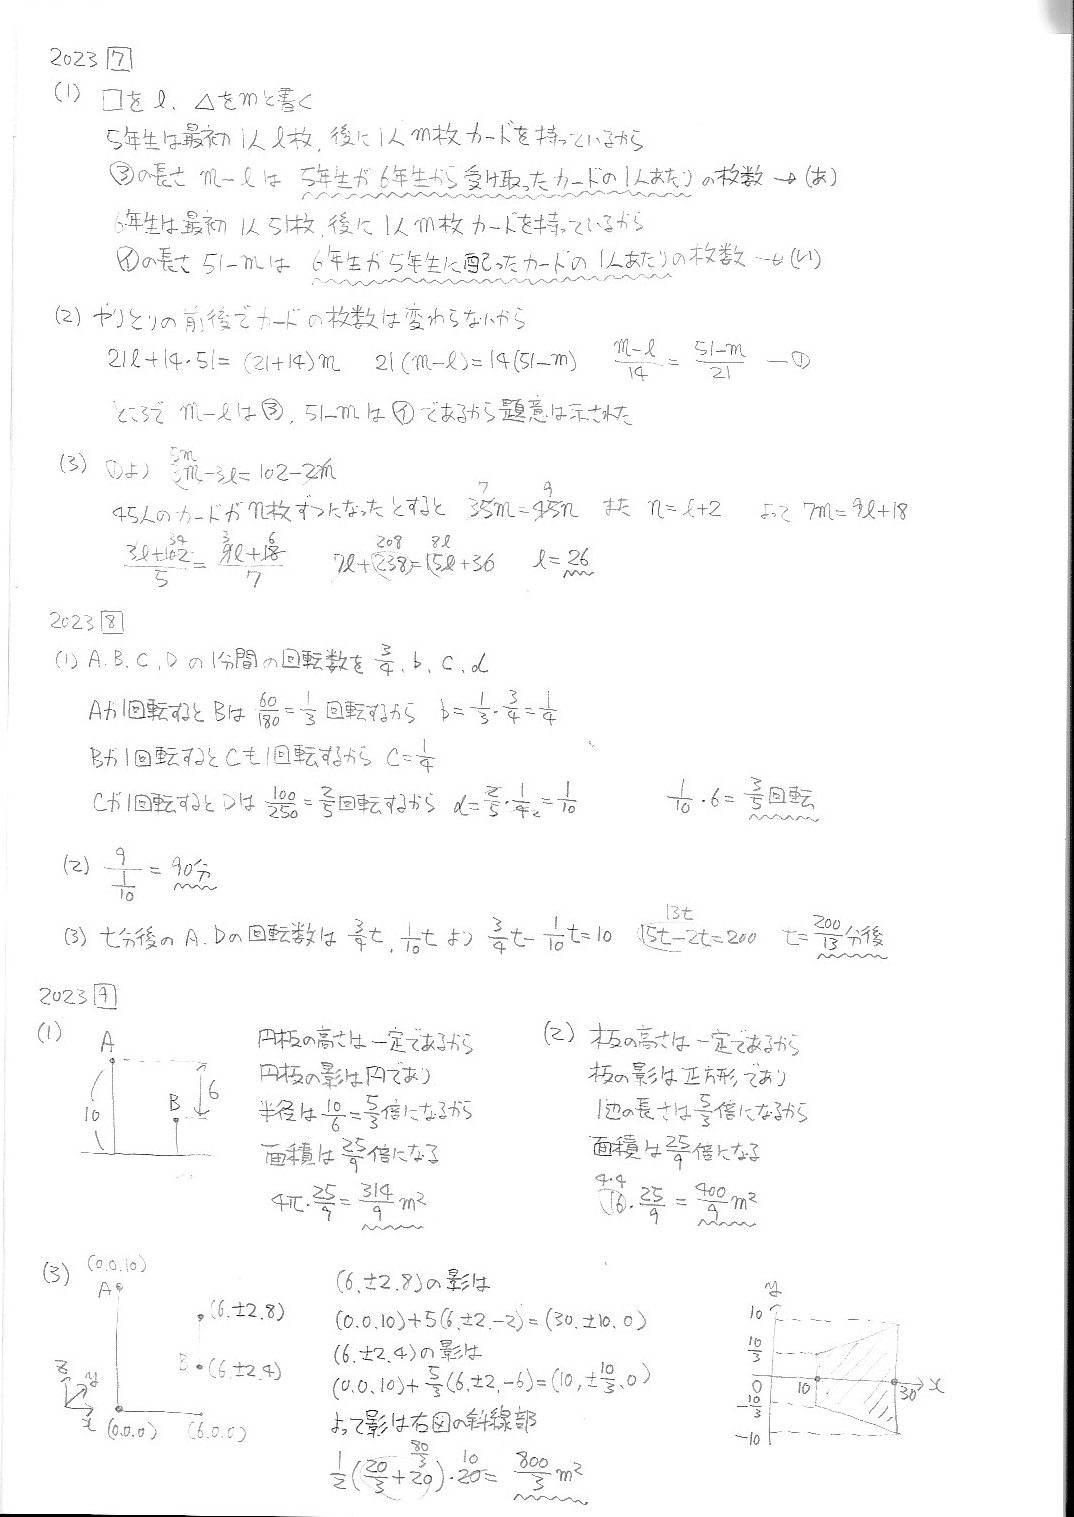 2023 7
(1) □をl、△をmと書く
5年生は最初1人l枚,後に1人m枚カードを持っているから
㋐の長さ m-lは 5年生が6年生から受け取ったカードの1人あたりの枚数→(あ)
6年生は最初1人51枚,後に1人m枚カードを持っているから
㋑の長さ 51-mは 6年生が5年生に配ったカードの1人あたりの枚数→(い)
(2) やりとりの前後でカードの枚数は変わらないから
21l+14・51=(21+14)m 21(m-l)=14(51-m) (m-l)/14=(51-m)/21 ―①
ところで m-lは㋐, 51-mは㋑であるから題意は示された
(3) ①より 3m-3l=102-2m 5m
45人のカードがn枚ずつになったとすると 35m=45n 7 9 また n=l+2 よって 7m=9l+18
(3l+102)/5=(9l+18)/7 34 3 6 7l+238=15l+36 208 8l l=26
2023 8
(1) A.B.C.Dの1分間の回転数を 3/4, b, c, d
Aが1回転するとBは 60/180=1/3 回転するから b=1/3・3/4=1/4
Bが1回転するとCも1回転するから C=1/4
Cが1回転するとDは 100/250=2/5回転するから d=2/5・1/4=1/10 2 1/10・6=3/5回転
(2) 9/(1/10)=90分
(3) t分後のA.Dの回転数は 3/4t, 1/10tより 3/4t-1/10t=10 15t-2t=200 13t t=200/13分後
2023 9
(1) A
10
B
6
円板の高さは一定であるから
円板の影は円であり
半径は10/6=5/3倍になるから
面積は25/9倍になる
4π・25/9=314/9 m²
(2) 板の高さは一定であるから
板の影は正方形であり
1辺の長さは5/3倍になるから
面積は25/9倍になる
4・4
16・25/9=400/9 m²
(3) (0.0.10)
A
(6.±2.8)
B (6.±2.4)
z y x
(0.0.0) (6.0.0)
(6.±2.8)の影は
(0.0.10)+5(6.±2.-2)=(30.±10.0)
(6.±2.4)の影は
(0.0.10)+5/3(6.±2.-6)=(10.±10/3.0)
よって影は右図の斜線部
1/2(20/3+20)・20=800/3 m² 80/3 10
y
10
10/3
0 10 30 x
-10/3
-10